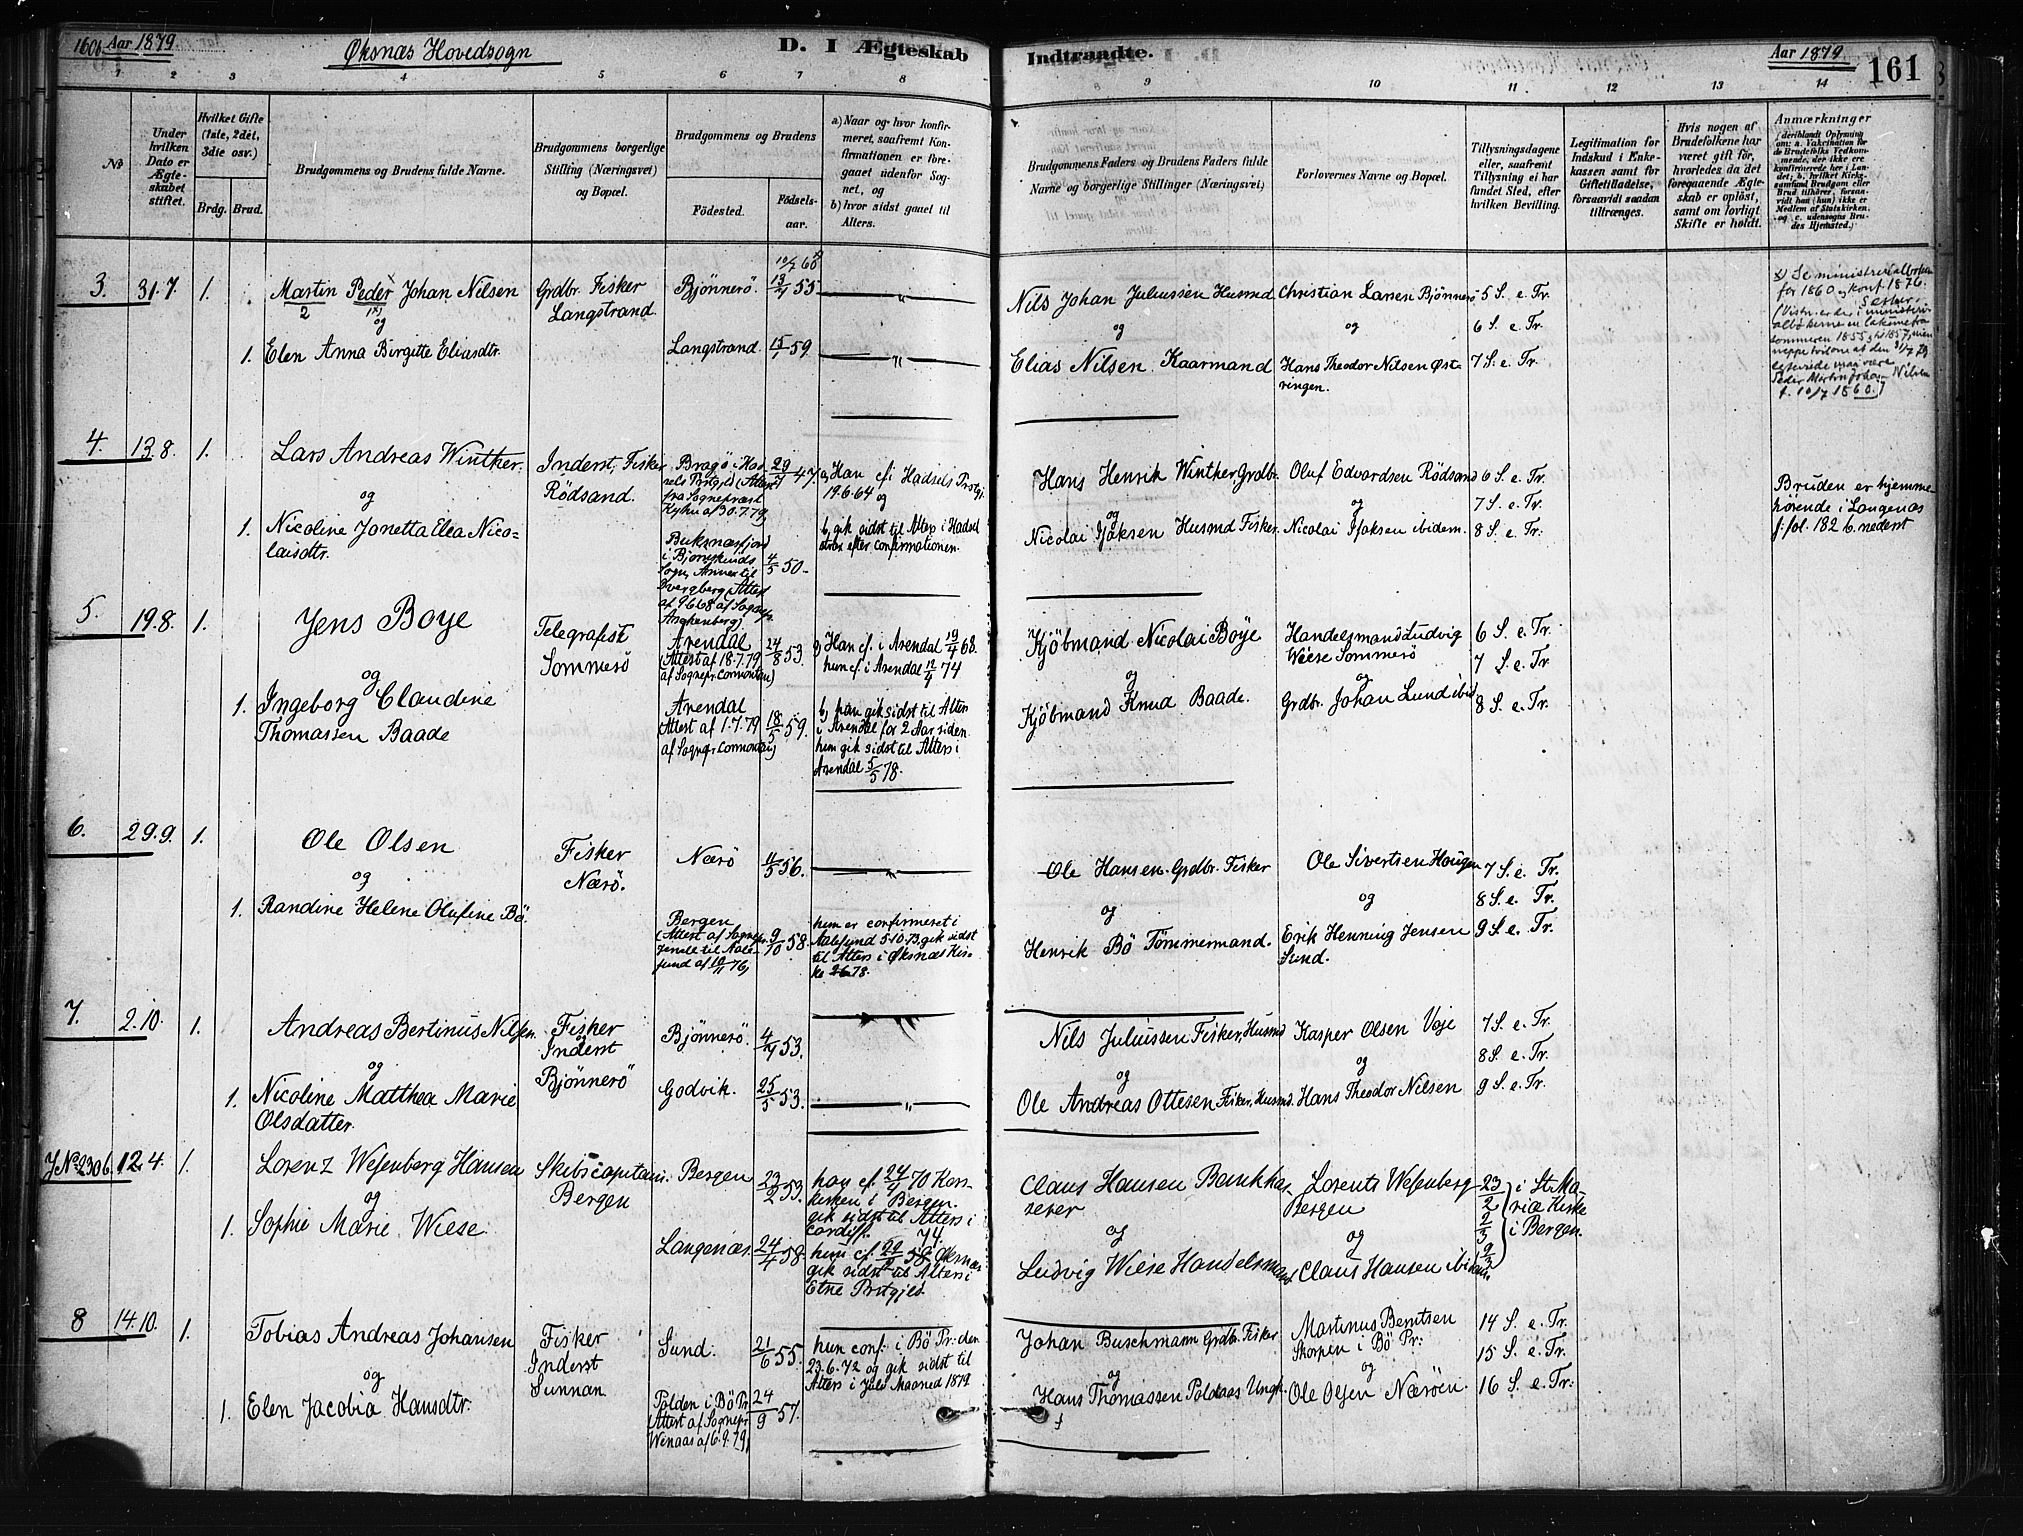 160b Aar 1879
Øksnæs Hovedsogn
D. I Ægteskab Indtraadte.
Aar 1879
161
1 2 3 4 5 6 7 8 9 10 11 12 13 14
No
Under hvilken Dato er Ægteskabet stiftet.
Hvilket Gifte (1ste, 2det, 3die osv.)
Brdg. Brud.
Brudgommens og Brudens fulde Navne.
Brudgommens borgerlige Stilling (Næringsvei) og Bopæl.
Brudgommens og Brudens
Födested.
Födselsaar.
a) Naar og hvor konfirmeret, saafremt Konfirmationen er foregaaet udenfor Sognet, og
b) hvor sidst gaaet til Alters.
Brudgommens Faders og Brudens Faders fulde Navne og borgerlige Stillinger (Næringsvei)
Forlovernes Navne og Bopæl.
Tillysningsdagene eller, saafremt Tillysning ei har fundet Sted, efter hvilken Bevilling.
Legitimation for Indskud i Enkekassen samt for Giftetilladelse, forsaavidt saadan tiltrænges.
Hvis nogen af Brudefolkene har været gift för, hvorledes da det foregaaende Ægteskab er oplöst, samt om lovligt Skifte er holdt.
Anmærkninger
(deriblandt Oplysning om: a. Vakcination for de Brudefolks Vedkommende, der ikke ere konfirmerede her i Landet; b. hvilket Kirkesamfund Brudgom eller Brud tilhører, forsaavidt han (hun) ikke er Medlem af Statskirken. og c. udensogns Brudes Hjemsted.)
3. 31.7. 1. Martin Peder Johan Nilsen
Grdbr. Fisker
Langstrand.
Bjönnerö 13/4 55
10/7 60
Nils Johan Juliussen Husmd
Christian Larsen Bjönnerö
5 S. e. Tr.
og
og
6 S. e. Tr.
1. Elen Anna Birgitte Eliasdtr.
Langstrand. 15/1 59.
Elias Nilsen Kaarmand
Hans Theodor Nilsen Østringen.
7 S. e. Tr.
x) Se ministerialboken
for 1860 og konf. 1876.
4. 13.8. 1. Lars Andreas Winther.
Inderst, Fisker
Rödsand.
Bragö i Hadsels Prstgjld (Attest
fra Sognepræst
af 30.7.79)
29/7 47.
a, Han cf. i Hadsels Prstgj.
19.6.64 og
Hans Henrik Winther, Grdbr.
Oluf Edvardsen Rödsand
6 S. e. Tr.
og
og
7 S. e. Tr.
1. Nicoline Jonetta Elea Nicolaisdtr.
Buksnæsfjord
i Bjørnskinds
Sogn, Annex til
Dverberg (Attest
4/5 50.
b, gik sidst til Alters i Hadsel
strax efter confirmationen.
Nicolai Isaksen Husmd Fisker.
Nicolai Isaksen ibidem.
8 S. e. Tr.
Bruden er hjemmehørende i Langenæs
f. fol. 182 b. nederst
5. 19.8. 1. Jens Boye
Telegrafist
Sommerö
Arendal
(Attest af 18.7.79
af Sognepr. Cormontan)
24/8 53.
a) Han cf. i Arendal 19/4 68.
hun cf. i Arendal 12/4 74
Kjöbmand Nicolai Boye
Handelsmand Ludvig
Wiese Sommerö
6 S. e. Tr.
7 S. e. Tr.
og
1. Ingeborg Claudine
Thomassen Baade
Arendal
(Attest af 1.7.79
af Sognepr. Cormontan)
18/5 59.
b, han gik sidst til Alters
i Arendal for 2 Aar siden.
hun gik sidst til Alters i
Arendal 5/5 78.
Kjöbmand Knud Baade.
Grdbr. Johan Lund ibid
8 S. e. Tr.
6. 29.9. 1. Ole Olsen
Fisker
Nærö.
Nærö 11/5 56.
Ole Hansen. Grdbr. Fisker
Ole Sivertsen Haugen
7 S. e. Tr.
og
og
8 S. e. Tr.
1. Randine Helene Olufine Bö.
Bergen
(Attest af Sognepr.
til Aalesund af 10/11 76)
9/10 58.
hun er confirmeret i
Aalesund 5.10.73, gik sidst
til Alters i Øksnæs Kirke 2678.
Henrik Bö Tömmermand.
Erik Henning Jensen
Sund.
9 S. e. Tr.
7. 2.10. 1. Andreas Bertinus Nilsen.
Fisker
og
Inderst
Bjönnerö
Bjönnerö. 4/4 53.
Nils Juliussen Fisker, Husmd
Kasper Olsen Vaje
7 S. e. Tr.
og
og
8 S. e. Tr.
1. Nicoline Matthea Marie
Olsdatter.
Godvik. 25/5 53.
Ole Andreas Ottesen Fisker, Husmd.
Hans Theodor Nilsen
9 S. e. Tr.
J No 230 b. 12.4. 1. Lorenz Wesenberg Hansen
Skibscapitain.
Bergen
Bergen 23/2 53.
han cf. 24/4 70 Korskirken i Bergen.
gik sidst til Alters i
Cardiff.
Claus Hansen Bankkasserer
Lorents Wesenberg
Bergen
23/2 2/3 9/3 i St. Mariæ Kirke
i Bergen.
og
1. Sophie Marie Wiese.
Langenæs. 24/4 58
gik sidst til Alters i
Etne Prstgjld.
Ludvig Wiese Handelsmand
Claus Hansen ibidem.
8 14.10. 1. Tobias Andreas Johansen
Fisker
Inderst
Sunnan.
Sund. 21/6 55.
hun conf. i Bö Pr. den
23.6.72 og gik sidst til
Alters i Juli Maaned 1879
Johan Buschmann Grdbr. Fisker
Martinus Berntsen
Skorpen i Bö Pr:
14 S. e. Tr.
15 S. e. Tr.
og
1. Elen Jacobia Hansdtr.
Polden i Bö Pr.
(Attest af Sognepr.
Winaas af 6.9.79)
24/9 57.
Hans Thomassen Poldaas Ungk.
Ole Olsen Næröen.
16 S. e. Tr: